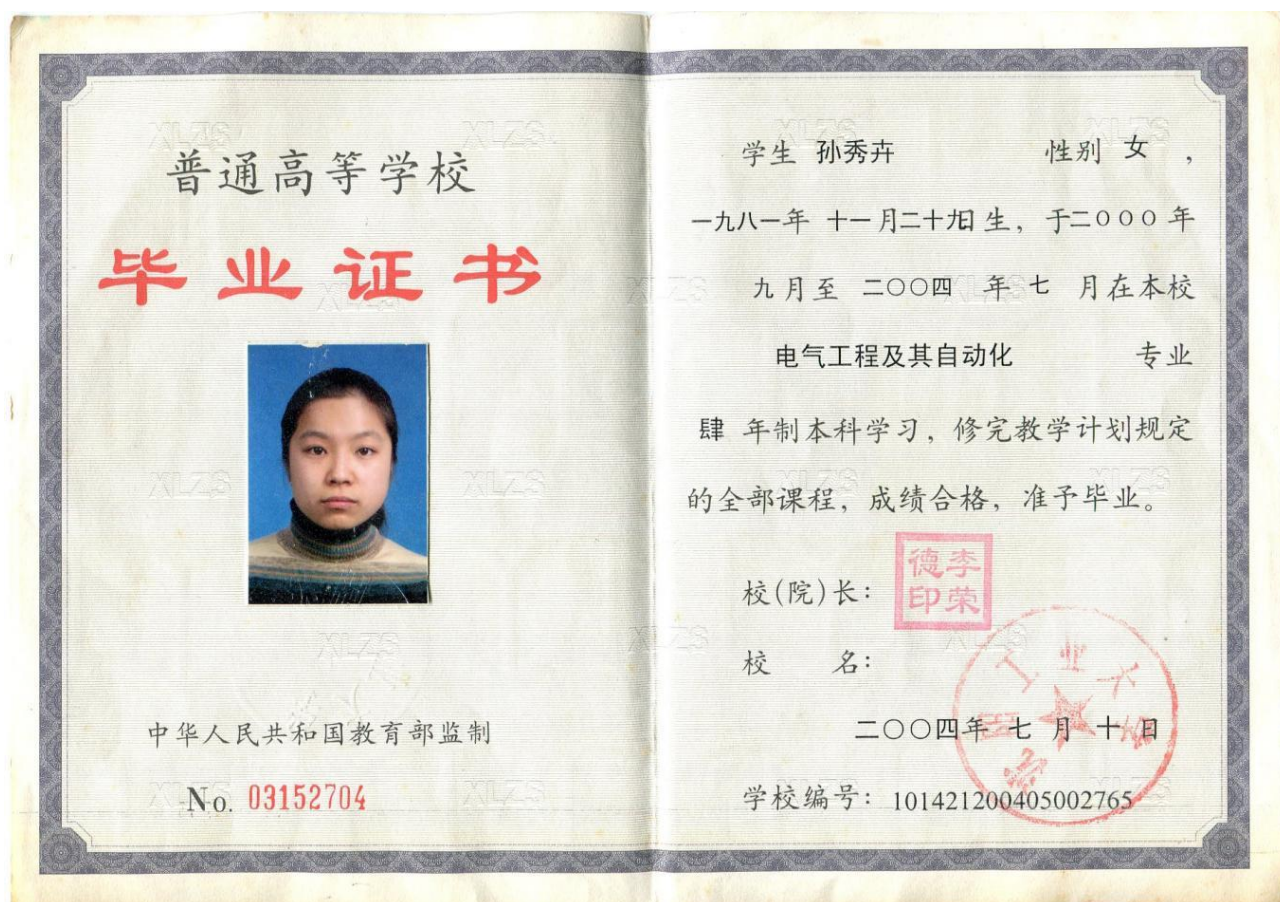 普通高等学校
毕业证书
中华人民共和国教育部监制
No. 03152704
学生 孙秀卉 性别 女 ，
一九八一年 十一月二十九日生，于二〇〇〇年
九月至 二〇〇四 年 七 月在本校
电气工程及其自动化 专业
肆 年制本科学习，修完教学计划规定
的全部课程，成绩合格，准予毕业。
校(院)长：
李荣德印
校 名：
工业大学
二〇〇四年 七 月 十 日
学校编号：101421200405002765
XLZS
XLZS
XLZS
XLZS
XLZS
XLZS
XLZS
XLZS